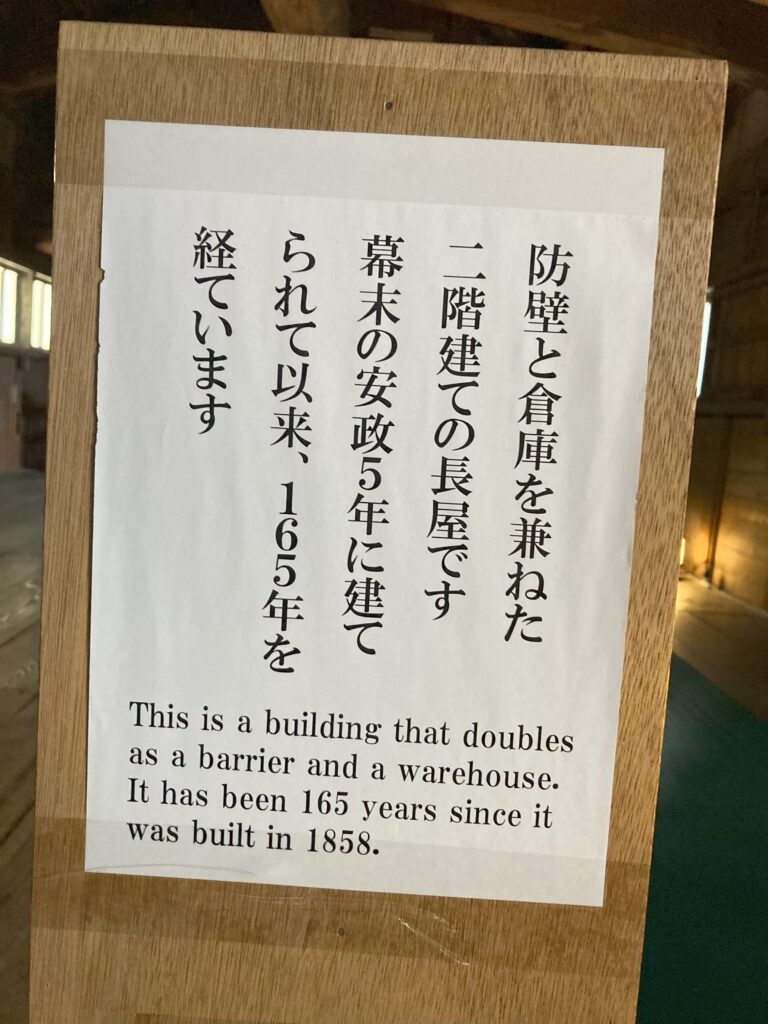 防壁と倉庫を兼ねた
二階建ての長屋です
幕末の安政5年に建て
られて以来、165年を
経ています
This is a building that doubles
as a barrier and a warehouse.
It has been 165 years since it
was built in 1858.